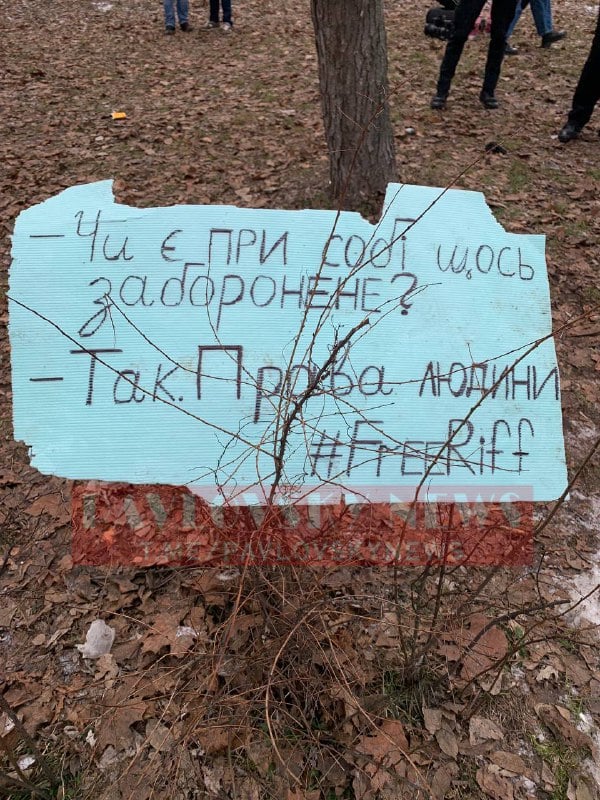 – Чи є при собі щось
заборонене?
– Так. Права людини
#FreeRiff
PAVLOVSKY NEWS
T.ME/PAVLOVSKYNEWS